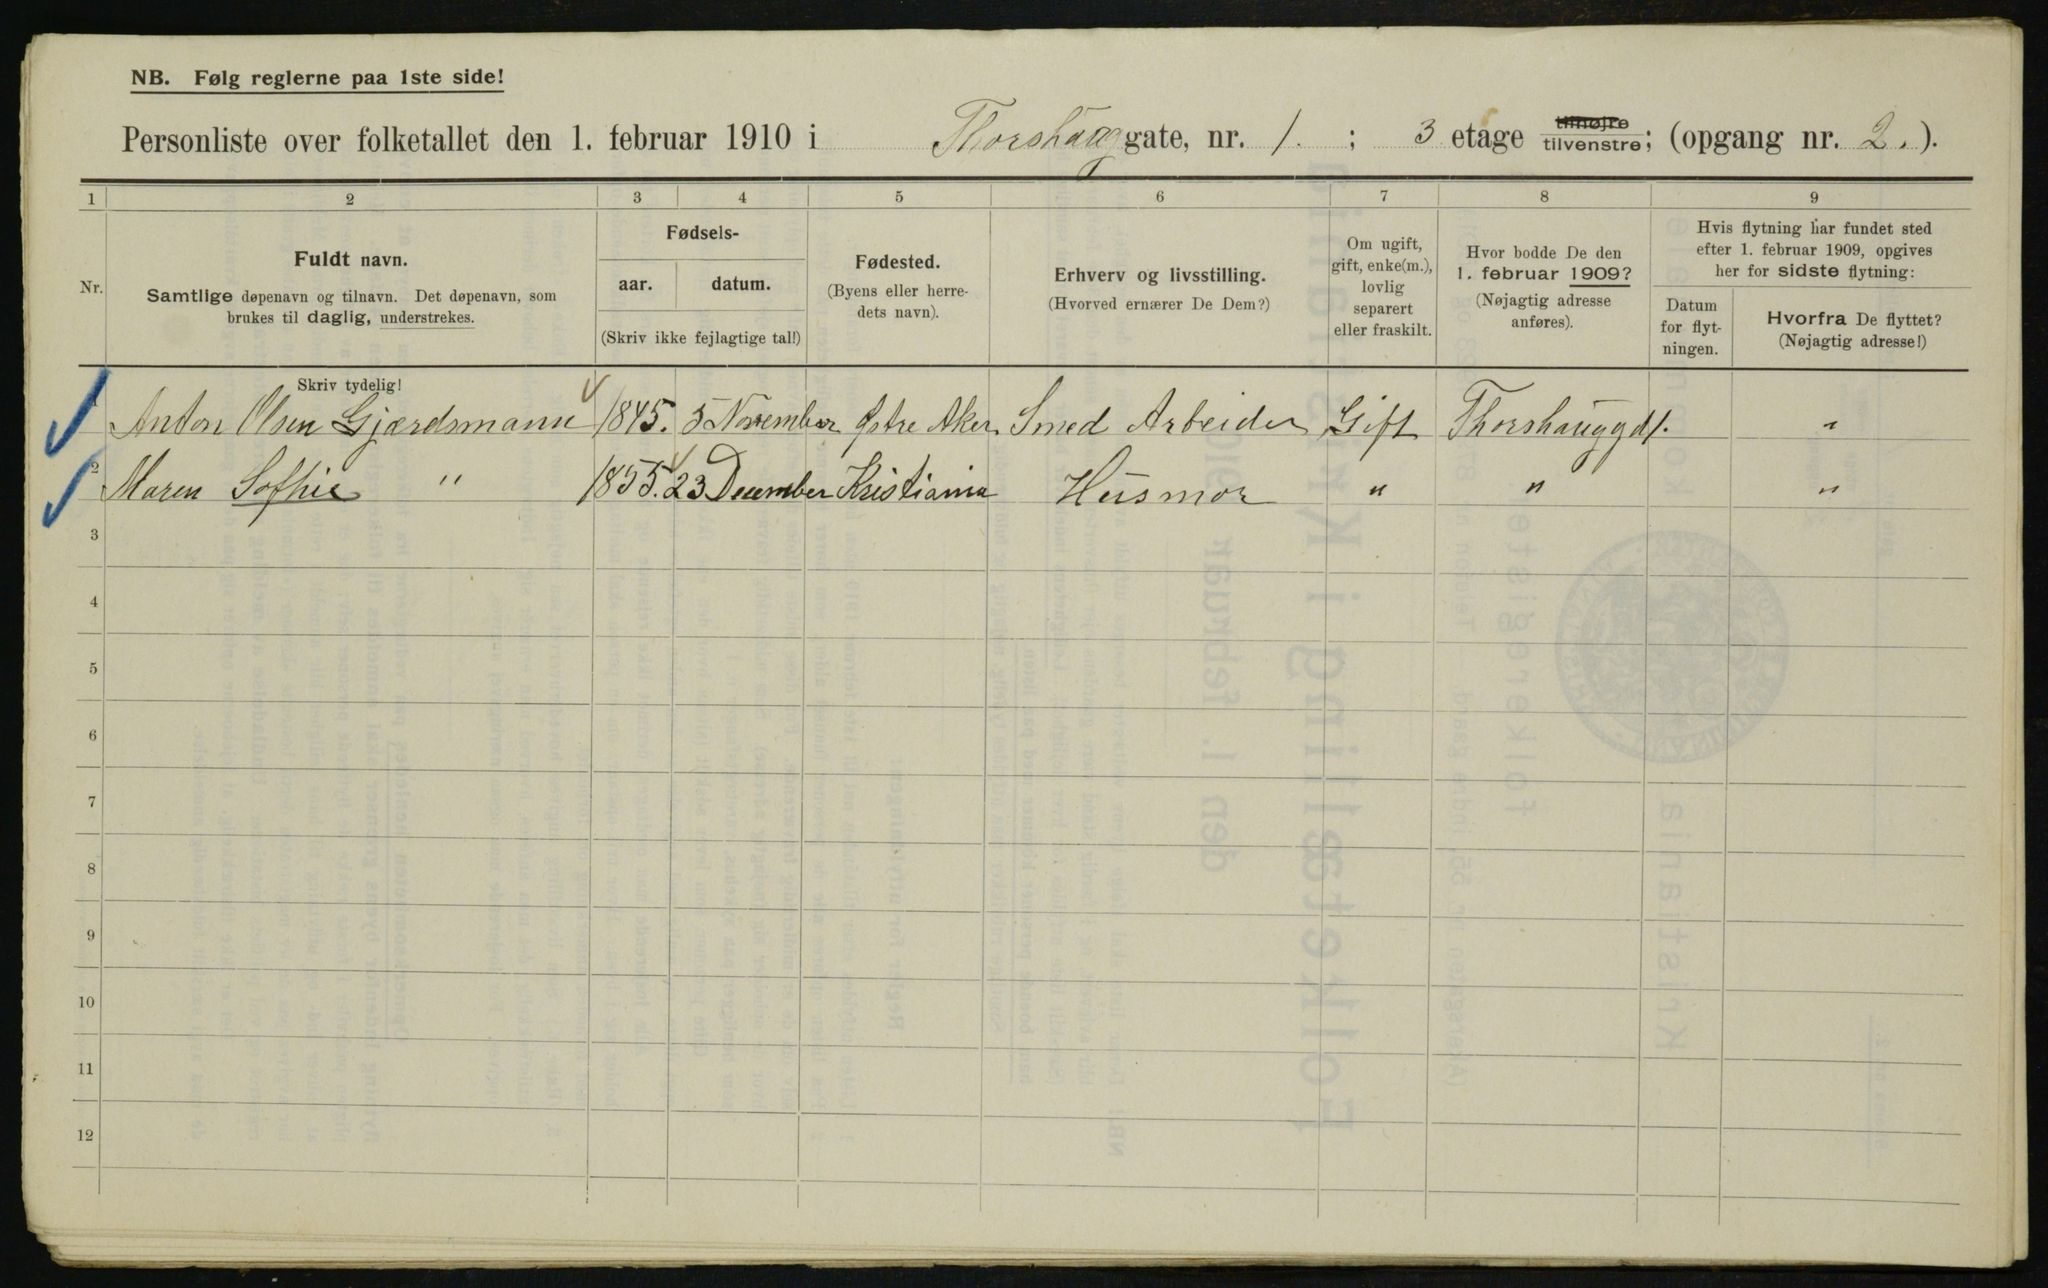 NB. Følg reglerne paa 1ste side!
Personliste over folketallet den 1. februar 1910 i Thorshauggate, nr. 1. ; 3 etage tilhøjre tilvenstre; (opgang nr. 2.).
1 2 3 4 5 6 7 8 9
Nr.
Fuldt navn.
Samtlige døpenavn og tilnavn. Det døpenavn, som
brukes til daglig, understrekes.
Fødsels-
aar. datum.
(Skriv ikke fejlagtige tal!)
Fødested.
(Byens eller herre-
dets navn).
Erhverv og livsstilling.
(Hvorved ernærer De Dem?)
Om ugift,
gift, enke(m.),
lovlig
separert
eller fraskilt.
Hvor bodde De den
1. februar 1909?
(Nøjagtig adresse
anføres).
Hvis flytning har fundet sted
efter 1. februar 1909, opgives
her for sidste flytning:
Datum
for flyt-
ningen.
Hvorfra De flyttet?
(Nøjagtig adresse!)
Skriv tydelig!
1 Anton Olsen Gjærdsmann 1845. 5 November Østre Aker Smed Arbeider Gift Thorshauggd 1. "
2 Maren Sofhie " 1855. 23 December Kristiania Husmor " " "
3
4
5
6
7
8
9
10
11
12